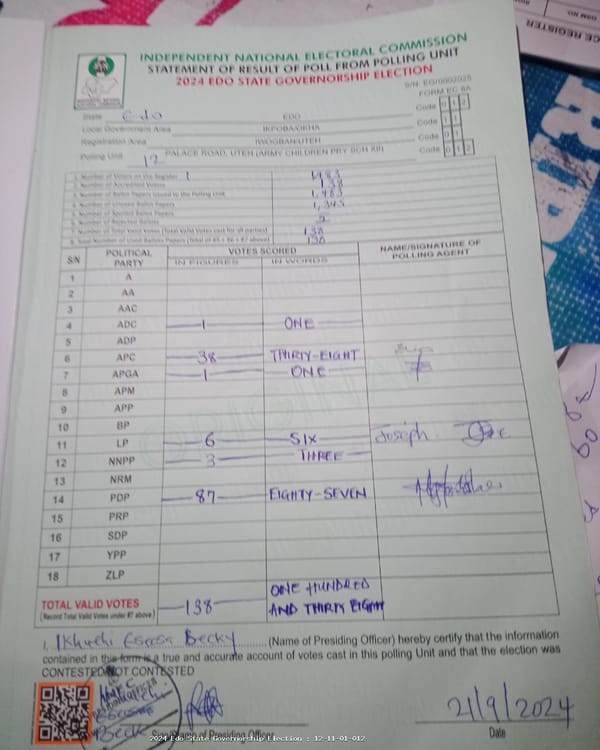 CE REGISTER
INDEPENDENT NATIONAL ELECTORAL COMMISSION
STATEMENT OF RESULT OF POLL FROM POLLING UNIT
2024 EDO STATE GOVERNORSHIP ELECTION
FORM EC 8A
State Edo EDO Code 1 2
Local Government Area IKPOBA/OKHA Code 1 1
Registration Area IWOGBAN/UTEH Code 0 1
Polling Unit 12 PALACE ROAD, UTEH (ARMY CHILDREN PRY SCH XII) Code 0 1 2
1. Number of Voters on the Register 1,483
2. Number of Accredited Voters 138
3. Number of Ballot Papers Issued to the Polling Unit 1,483
4. Number of Unused Ballot Papers 1,345
5. Number of Spoiled Ballot Papers
6. Number of Rejected Ballots
7. Number of Total Valid Votes (Total Valid Votes cast for all parties) 138
8. Total Number of Used Ballot Papers (Total of #5 + #6 + #7 above) 138
S/N POLITICAL PARTY VOTES SCORED IN FIGURES IN WORDS NAME/SIGNATURE OF POLLING AGENT
1 A
2 AA
3 AAC
4 ADC 1 ONE
5 ADP
6 APC 38 THIRTY-EIGHT
7 APGA 1 ONE
8 APM
9 APP
10 BP
11 LP 6 SIX Joseph
12 NNPP 3 THREE
13 NRM
14 PDP 87 EIGHTY-SEVEN
15 PRP
16 SDP
17 YPP
18 ZLP
TOTAL VALID VOTES 138 ONE HUNDRED AND THIRTY EIGHT
(Record Total Valid Votes under #7 above)
I, Ikhuehi Eseosa Becky (Name of Presiding Officer) hereby certify that the information
contained in this form is a true and accurate account of votes cast in this polling Unit and that the election was
CONTESTED/NOT CONTESTED
21/9/2024
of Presiding Officer Date
2024 Edo State Governorship Election : 12-11-01-012